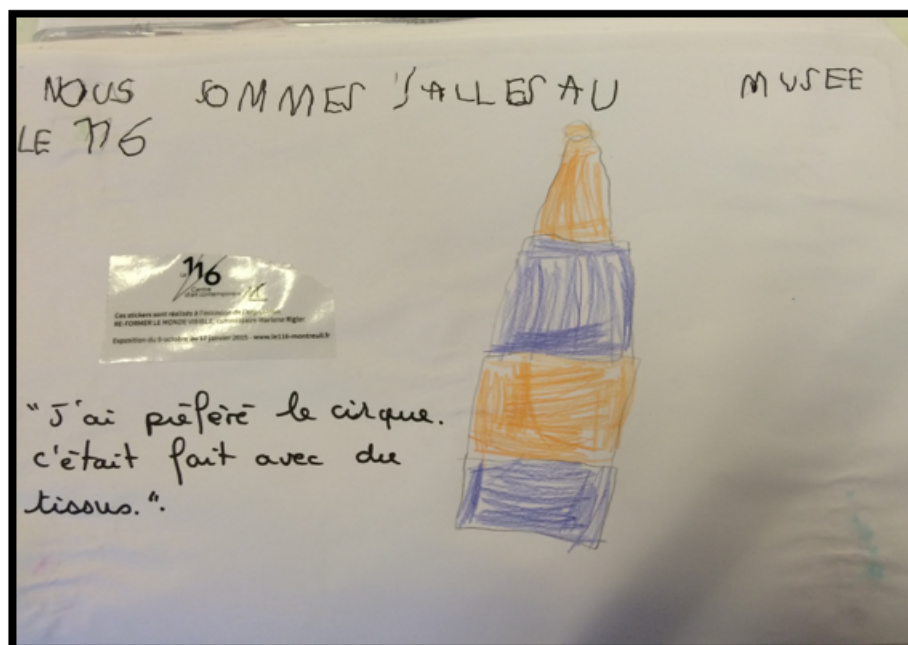 NOUS SOMMES S'ALLES AU MUSEE
LE 116
Le 116
Centre
d'art contemporain
Ces stickers sont réalisés à l'occasion de l'exposition
RE-FORMER LE MONDE VISIBLE, commissaire Marlène Rigler
Exposition du 8 octobre au 17 janvier 2015 - www.le116-montreuil.fr
"J'ai préféré le cirque.
c'était fait avec du
tissus.".